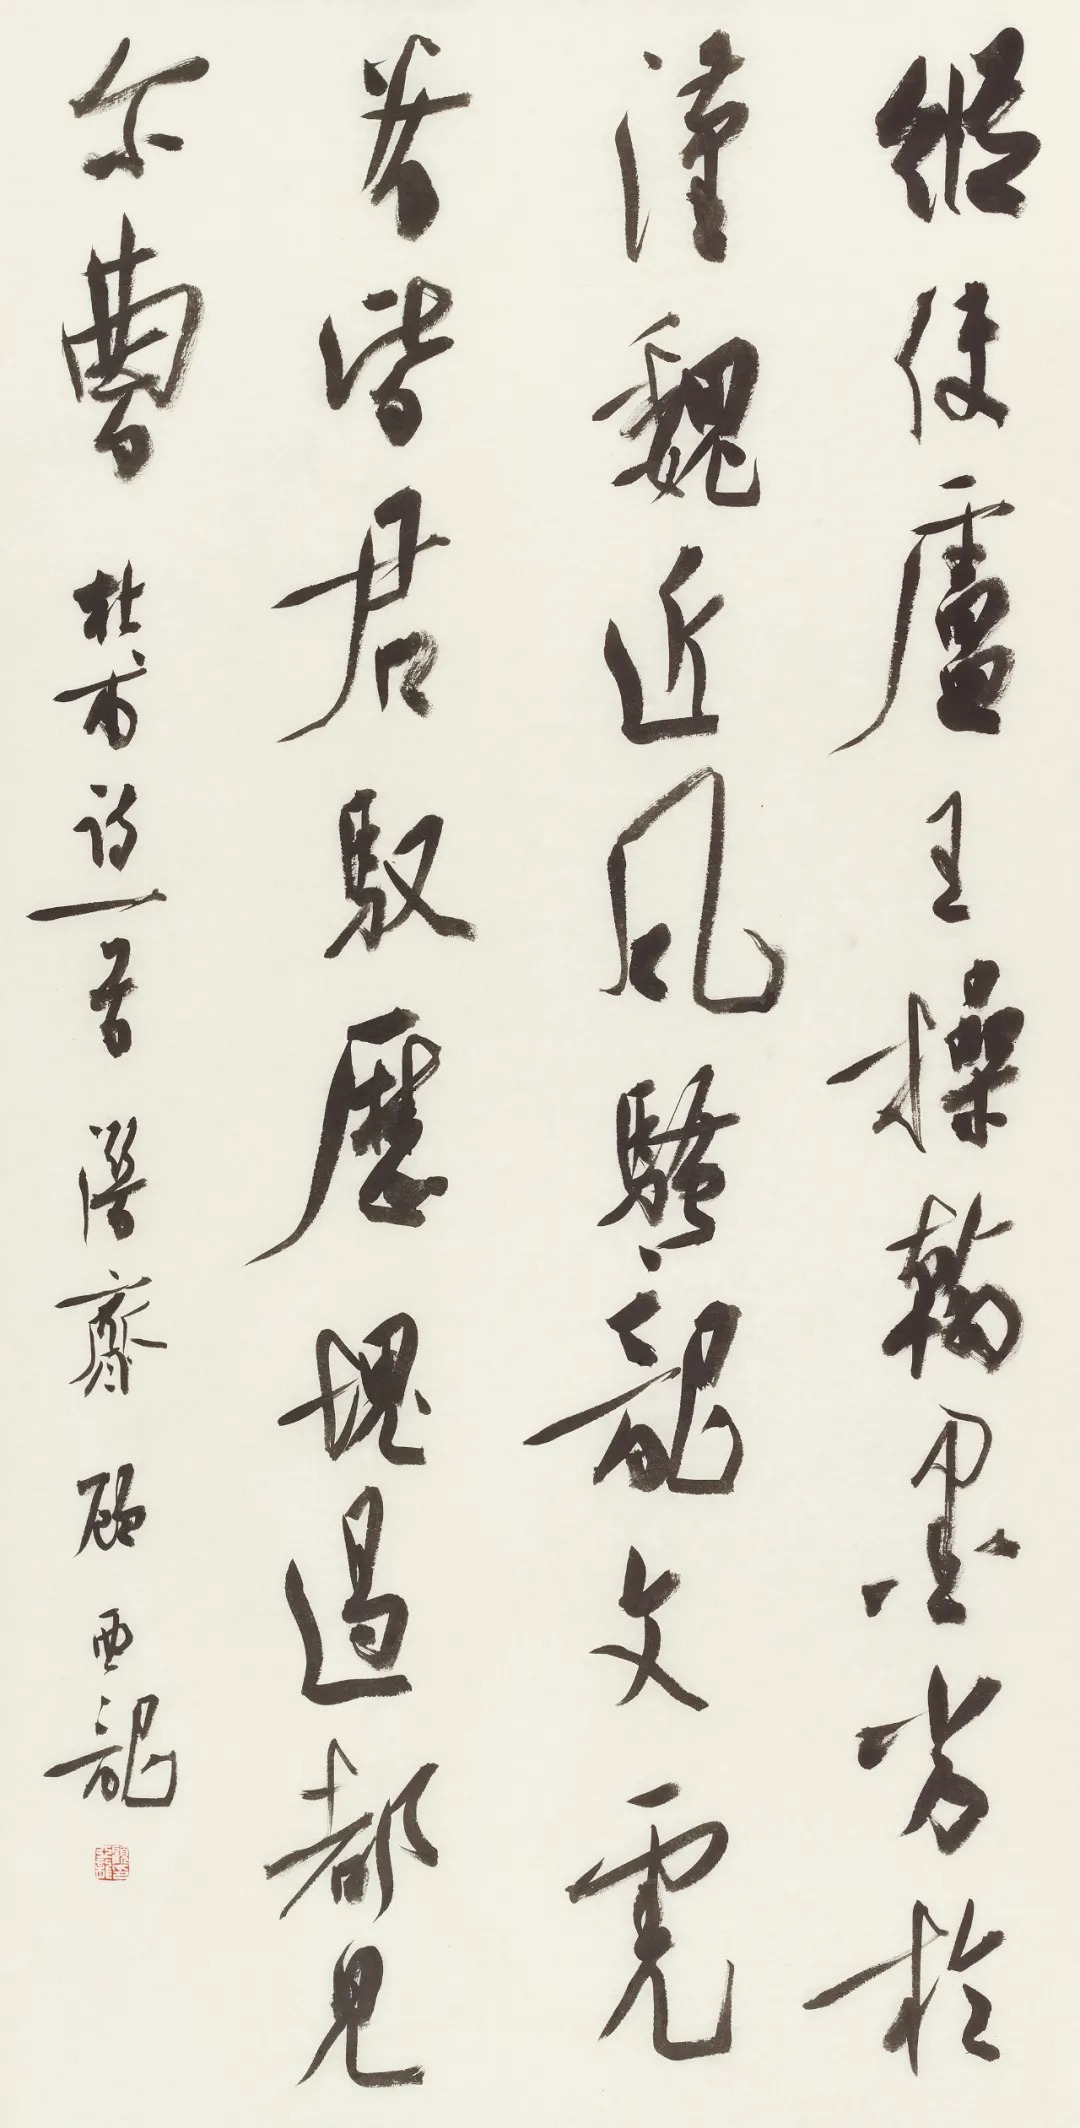 縱使盧王操翰墨劣於
漢魏近風騷龍文虎
脊皆君馭歷塊過都見
尔曹 杜甫詩一首 潛齋 顧亞龍